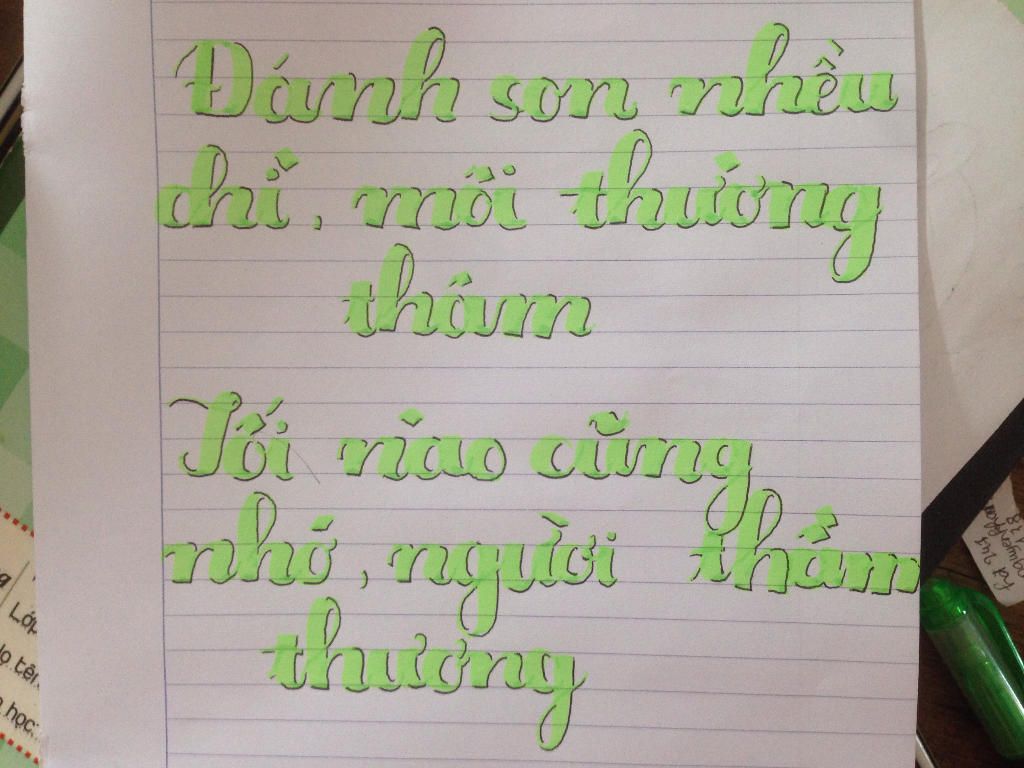 Đánh son nhều
chì, môi thường
thâm
Tối nào cũng
nhớ, người thầm
thương
Lớp
tên
học: